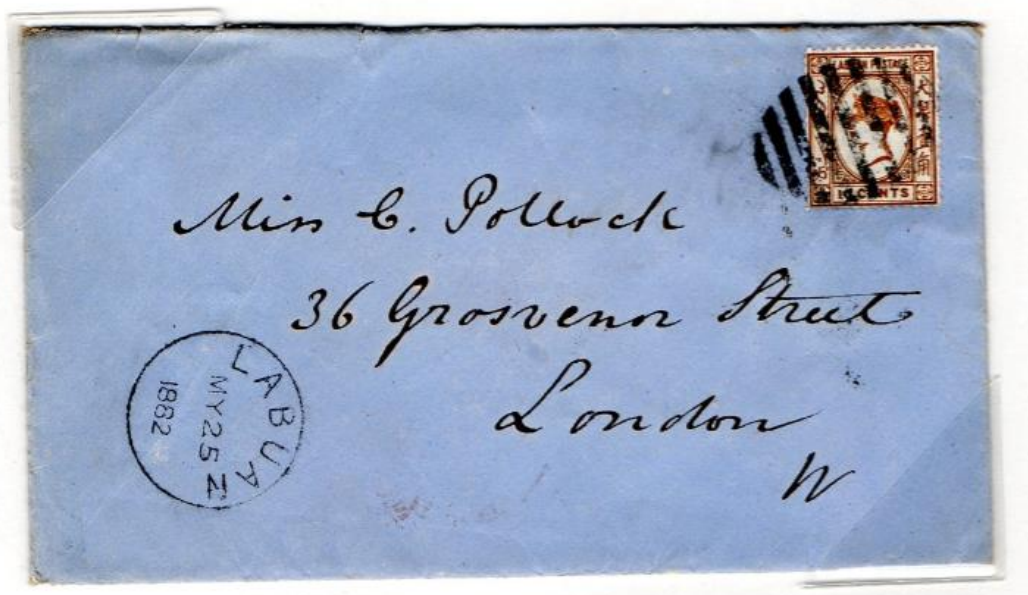 POSTAGE
CENTS
Miss C. Pollock
36 Grosvenor Street
London
W
LABUAN
MY 25
1882